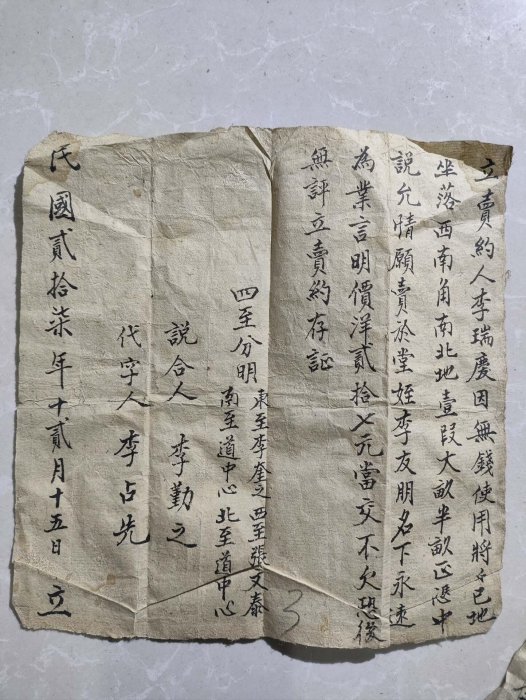 立賣約人李瑞慶因無錢使用將々己地
坐落西南角南北地壹段大畝半畝正憑中
說允情願賣於堂姪李友朋名下永遠
為業言明價洋貳拾七元當交不欠恐後
無評立賣約存証
四至分明
東至李奎之西至張文泰
南至道中心北至道中心
說合人 李勤之
代字人 李占先
民國貳拾柒年十貳月十五日 立
3